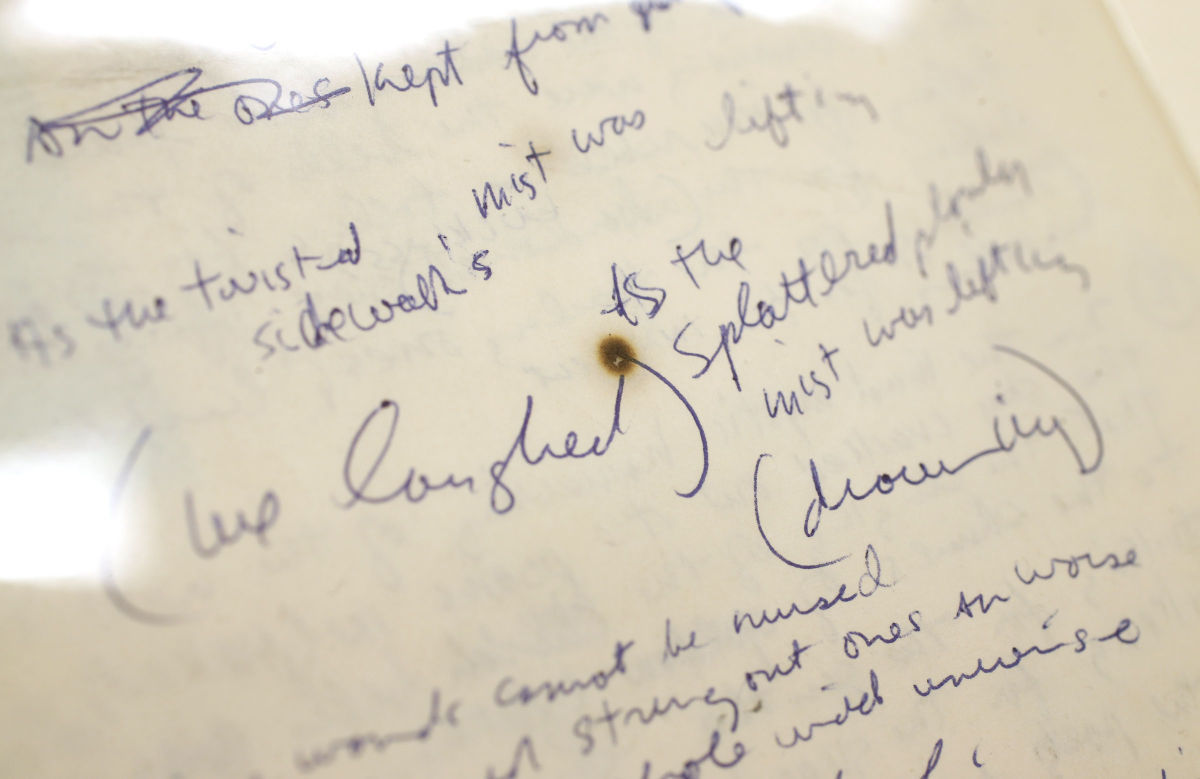 An the ones kept from
mist was lifting
As the twisted
sidewalk's
As the
splattered
mist was lifting
(we laughed)
(drowning)
wounds cannot be nursed
strung out ones an worse
whole wide unwise